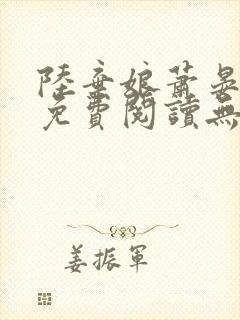 陸棄娘蕭晏
免費閱讀無
姜振軍